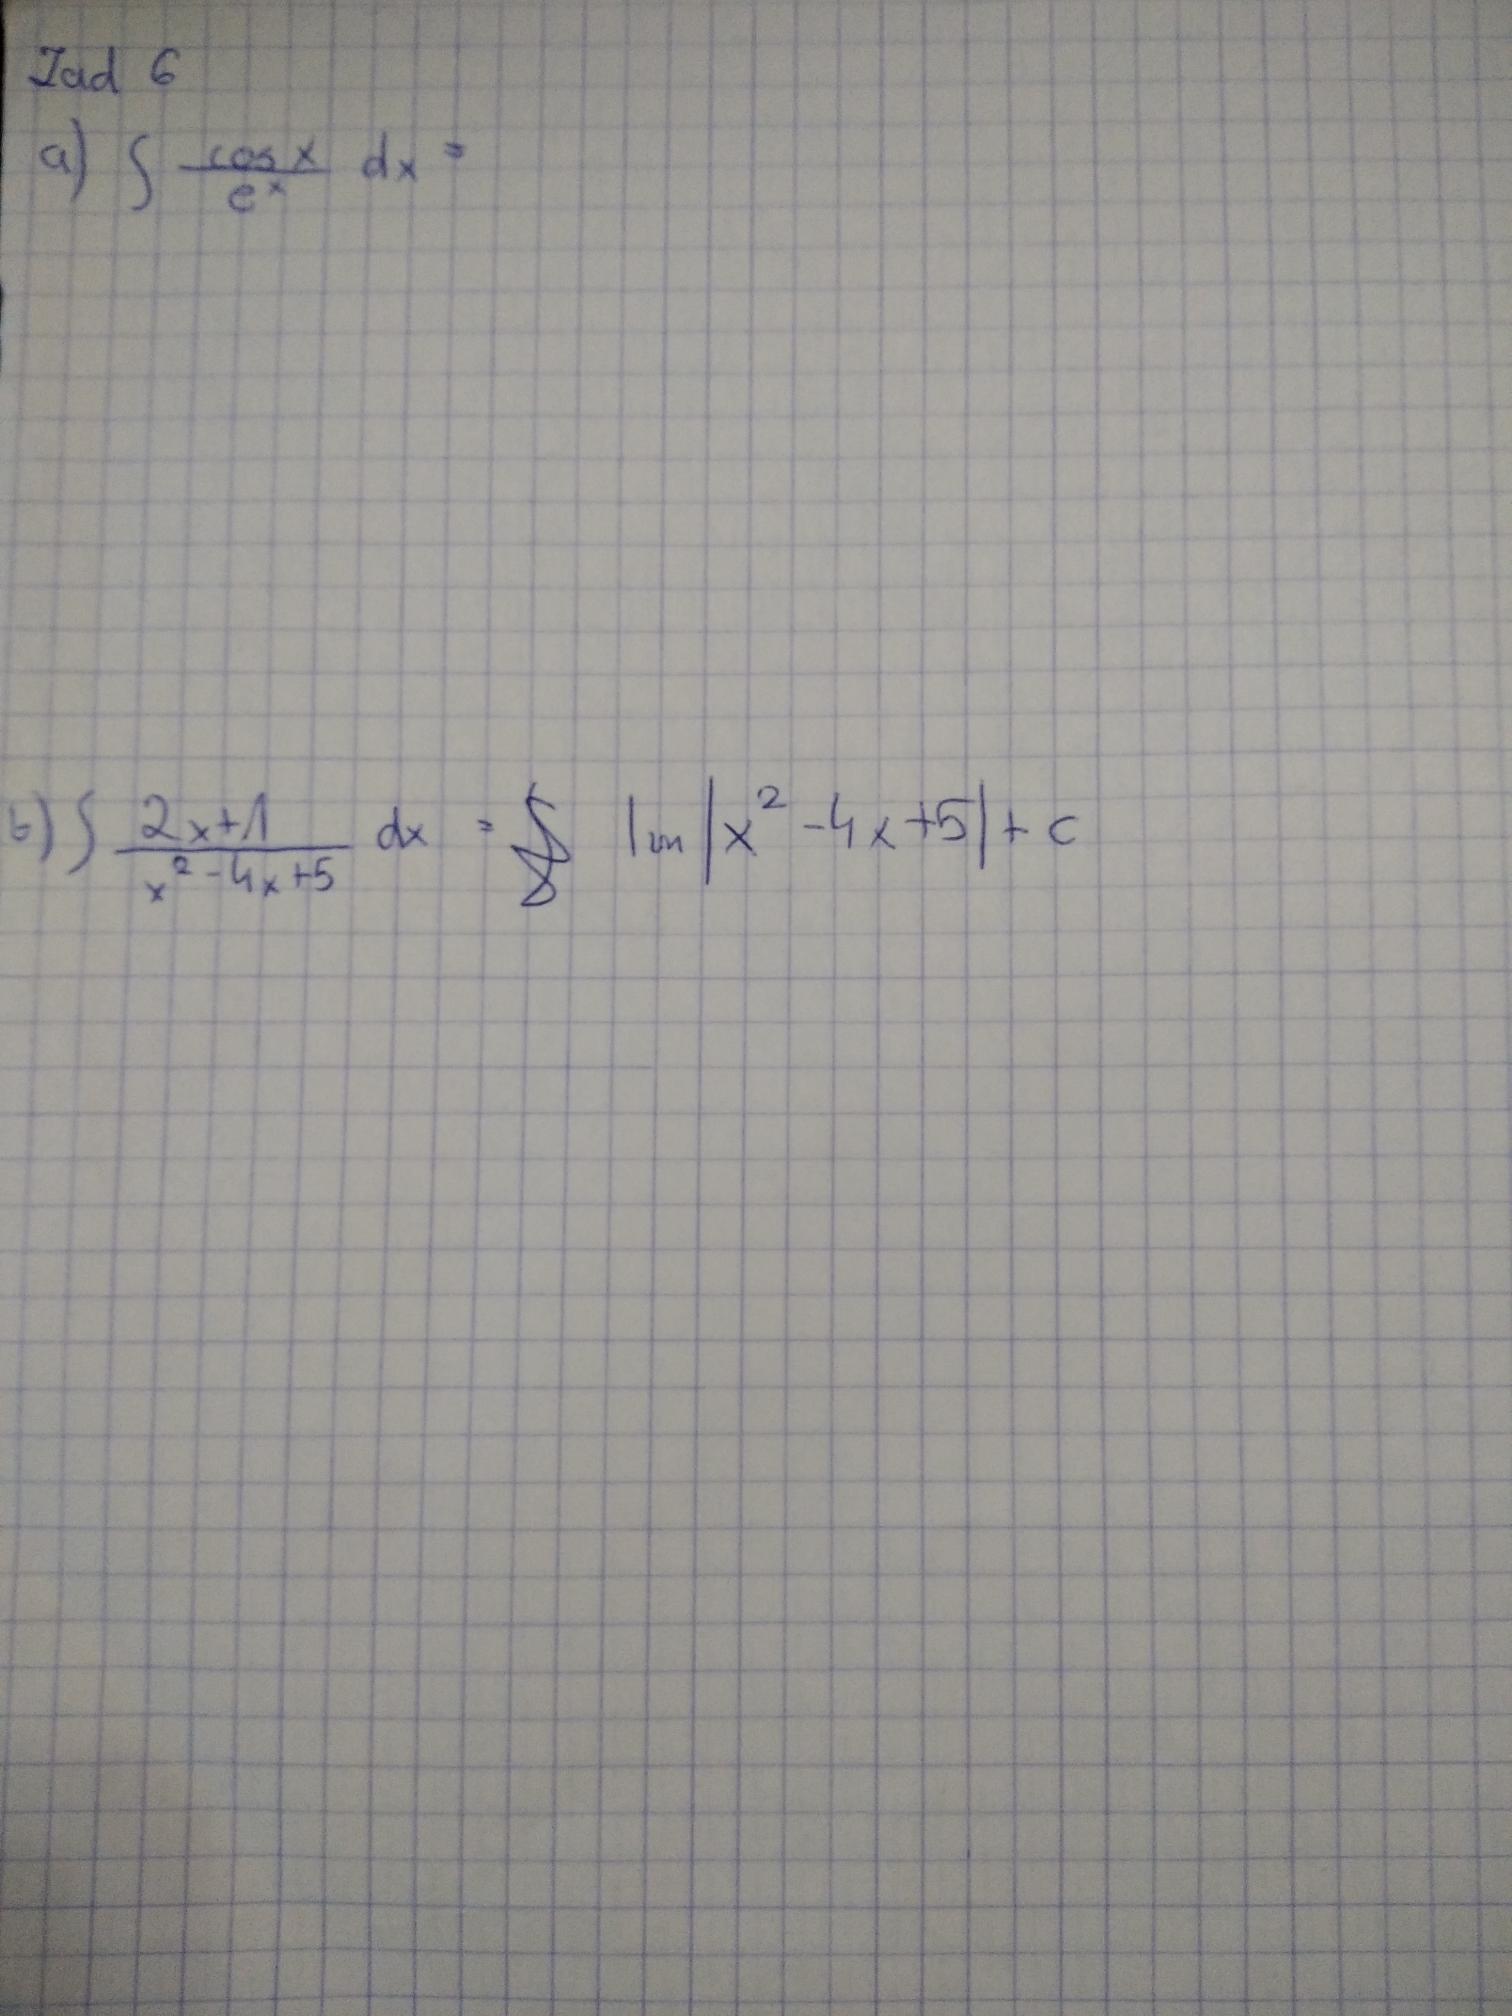 Zad 6
a) ∫ cosx/eˣ dx =
b) ∫ 2x+1/x²-4x+5 dx = ln|x²-4x+5|+c